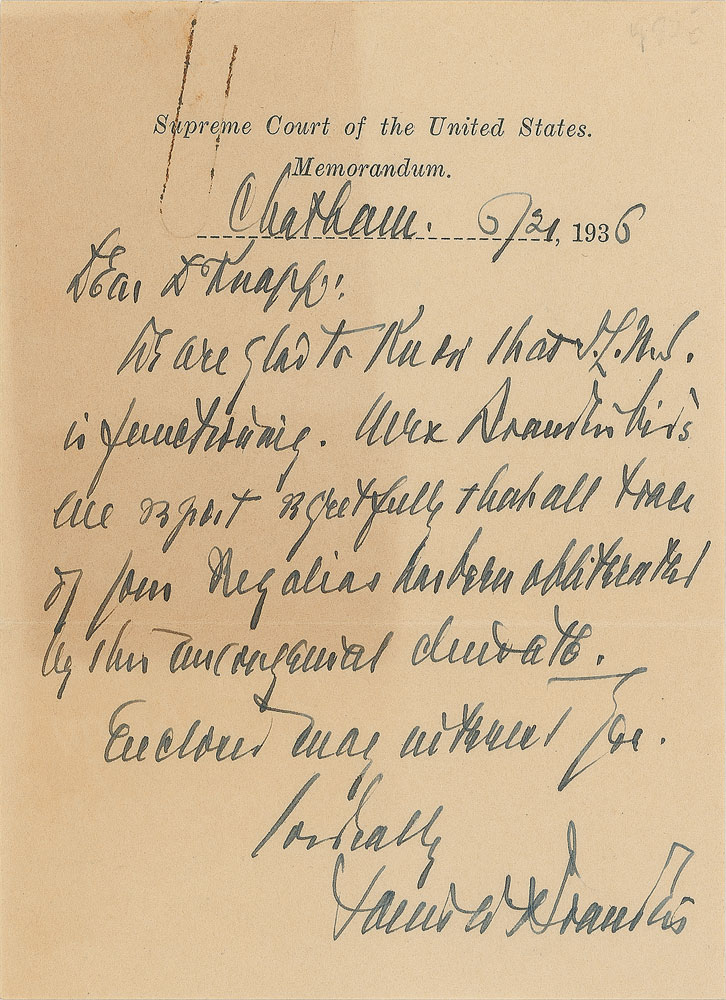 Supreme Court of the United States.
Memorandum.
Chatham. 6/21, 1936
Dear Dr Knapp:
We are glad to know that
is functioning. Mrs Brandeis bids
me report regretfully that all trace
of your has been obliterated
by this uncongenial climate.
Enclosed may interest you.
Cordially
Louis D Brandeis